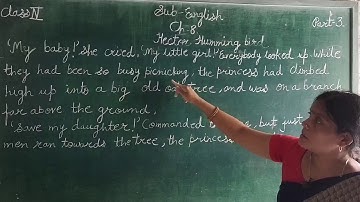 Class IV
Sub-English
Part-3.
Ch-8.
Hector Humming bird
'My baby! she cried, 'My little girl! Everybody looked up. while
they had been so busy picnicking, the princess had climbed
high up into a big old tree, and was on a branch
far above the ground.
'Save my daughter!' Commanded but just
men ran towards the tree, the princess